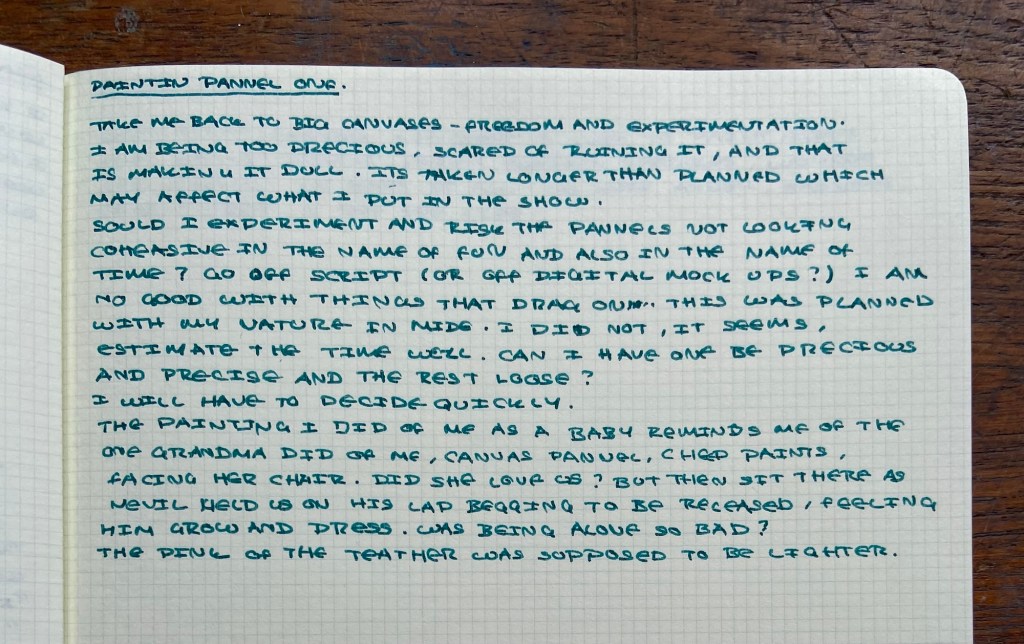 PAINTIN PANNEL ONE.
TAKE ME BACK TO BIG CANVASES - FREEDOM AND EXPERIMENTATION.
I AM BEING TOO PRECIOUS, SCARED OF RUINING IT, AND THAT
IS MAKING IT DULL. ITS TAKEN LONGER THAN PLANNED WHICH
MAY AFFECT WHAT I PUT IN THE SHOW.
SOULD I EXPERIMENT AND RISK THE PANNELS NOT LOOKING
COHEASIVE IN THE NAME OF FUN AND ALSO IN THE NAME OF
TIME? GO OFF SCRIPT (OR OFF DIGITAL MOCK UPS?) I AM
NO GOOD WITH THINGS THAT DRAG ON... THIS WAS PLANNED
WITH MY NATURE IN MIDE. I DID NOT, IT SEEMS,
ESTIMATE THE TIME WELL. CAN I HAVE ONE BE PRECIOUS
AND PRECISE AND THE REST LOOSE?
I WILL HAVE TO DECIDE QUICKLY.
THE PAINTING I DID OF ME AS A BABY REMINDS ME OF THE
ONE GRANDMA DID OF ME, CANVAS PANNEL, CHEP PAINTS,
FACING HER CHAIR. DID SHE LOVE US? BUT THEN SIT THERE AS
NEVIL HELD US ON HIS LAP BEGGING TO BE RECEASED, FEELING
HIM GROW AND PRESS. WAS BEING ALONE SO BAD?
THE PINK OF THE TEATHER WAS SUPPOSED TO BE LIGHTER.